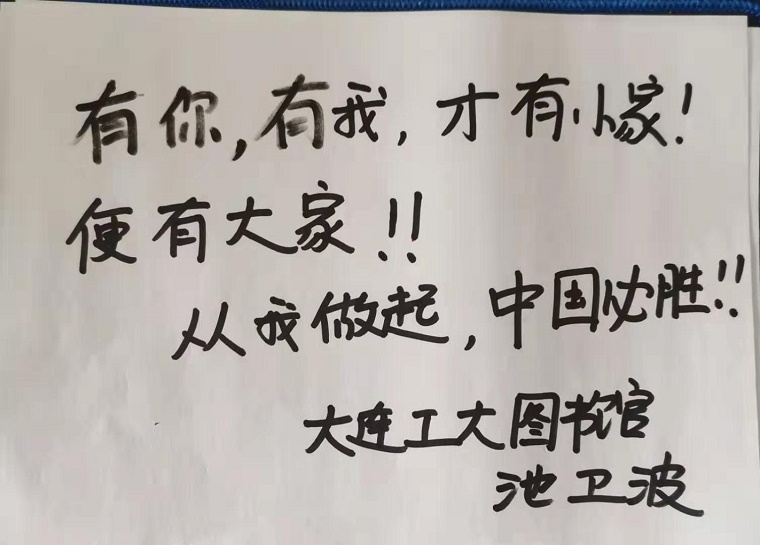 有你,有我,才有小家!
便有大家!!
从我做起,中国必胜!!
大连工大图书馆
池卫波